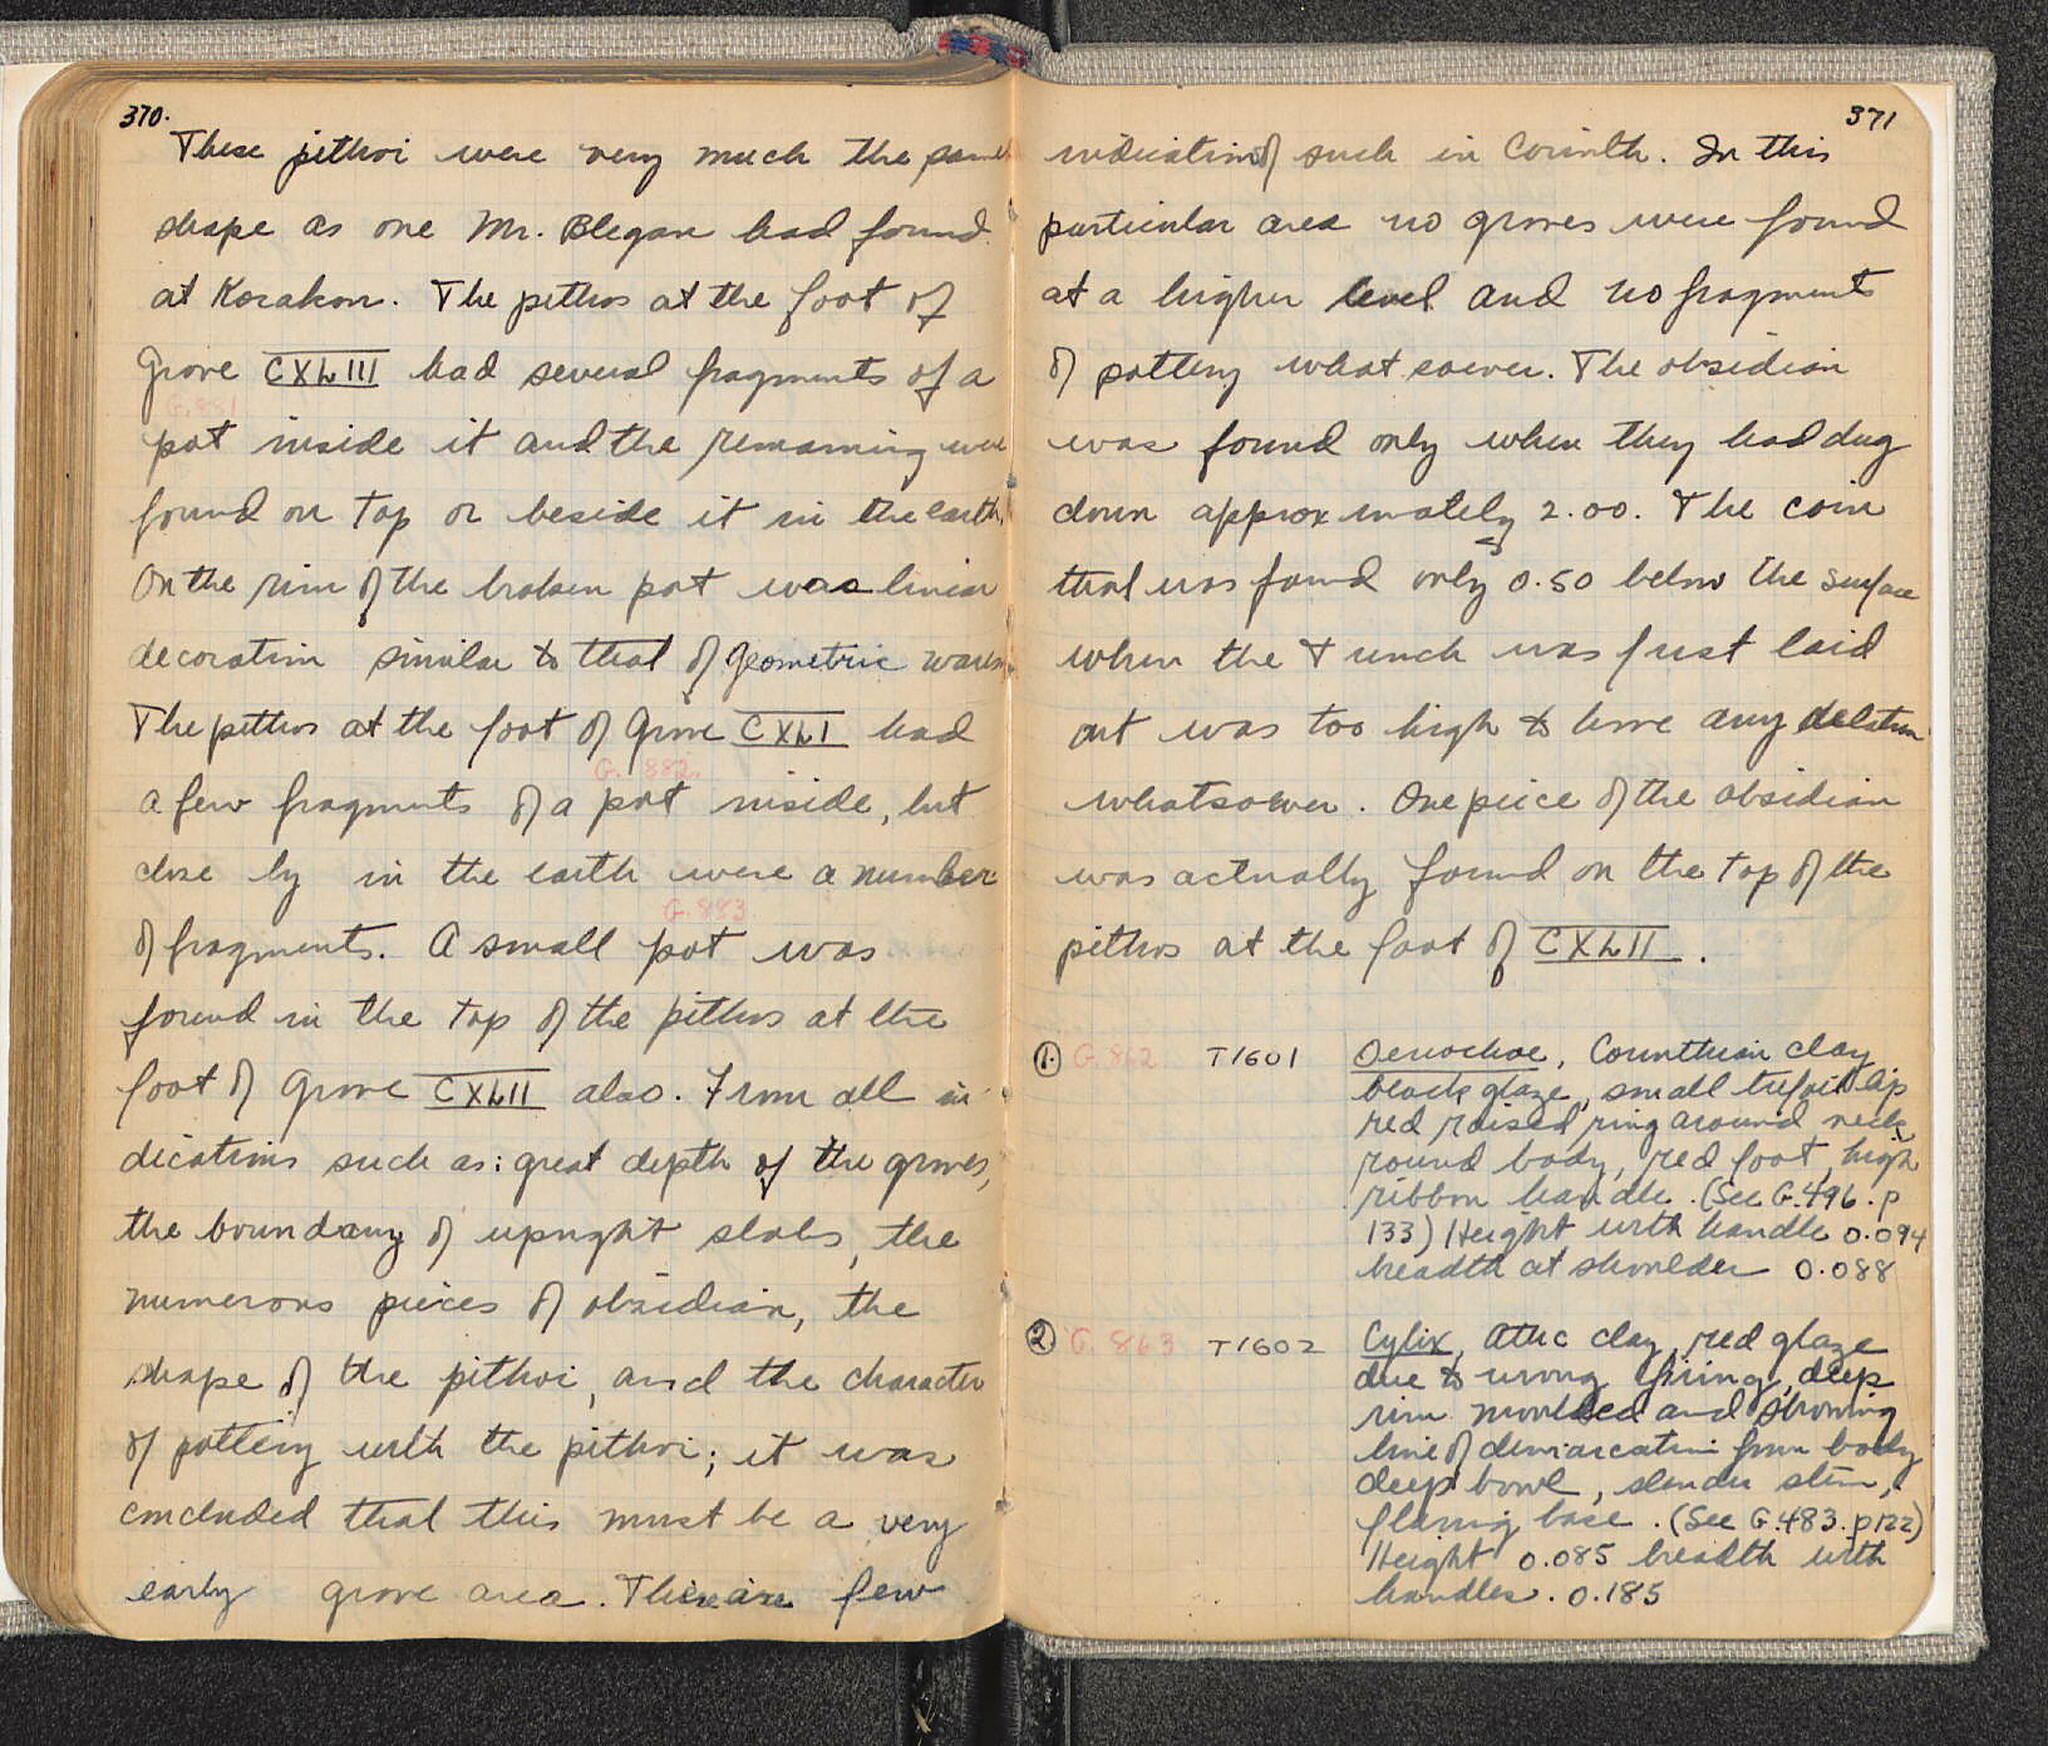 370.
These pithoi were very much the same
shape as one Mr. Blegan had found
at Korakou. The pithos at the foot of
Grave CXLIII had several fragments of a
G.881
pot inside it and the remaining were
found on top or beside it in the earth.
On the rim of the broken pot was linear
decoration similar to that of geometric wares.
The pithos at the foot of Grave CXLI had
G. 882.
a few fragments of a pot inside, but
close by in the earth were a number
G.883
of fragments. A small pot was
found in the top of the pithos at the
foot of Grave CXLII also. From all in
dications such as: great depth of the graves,
the boundary of upright slabs, the
numerous pieces of obsidian, the
shape of the pithoi, and the character
of pottery with the pithoi; it was
concluded that this must be a very
early grave area. There are few
371
indications of such in Corinth. In this
particular area no graves were found
at a higher level and no fragments
of pottery what soever. The obsidian
was found only when they had dug
down approximately 2.00. The coin
that was found only 0.50 below the surface
when the trench was first laid
out was too high to have any relation
whatsoever. One piece of the obsidian
was actually found on the top of the
pithos at the foot of CXLII.
1. G. 862 T1601 Oenochoe, Corinthian clay
black glaze, small trefoil lip
red raised ring around neck,
round body, red foot, high
ribbon handle. (See G.496. p
133) Height with handle 0.094
breadth at shoulder 0.088
2. G. 863 T1602 Cylix, Attic clay, red glaze
due to wrong firing, deep
rim moulded and showing
line of demarcation from body
deep bowl, slender stem,
flaring base. (See G.483. p122)
Height 0.085 breadth with
handles. 0.185